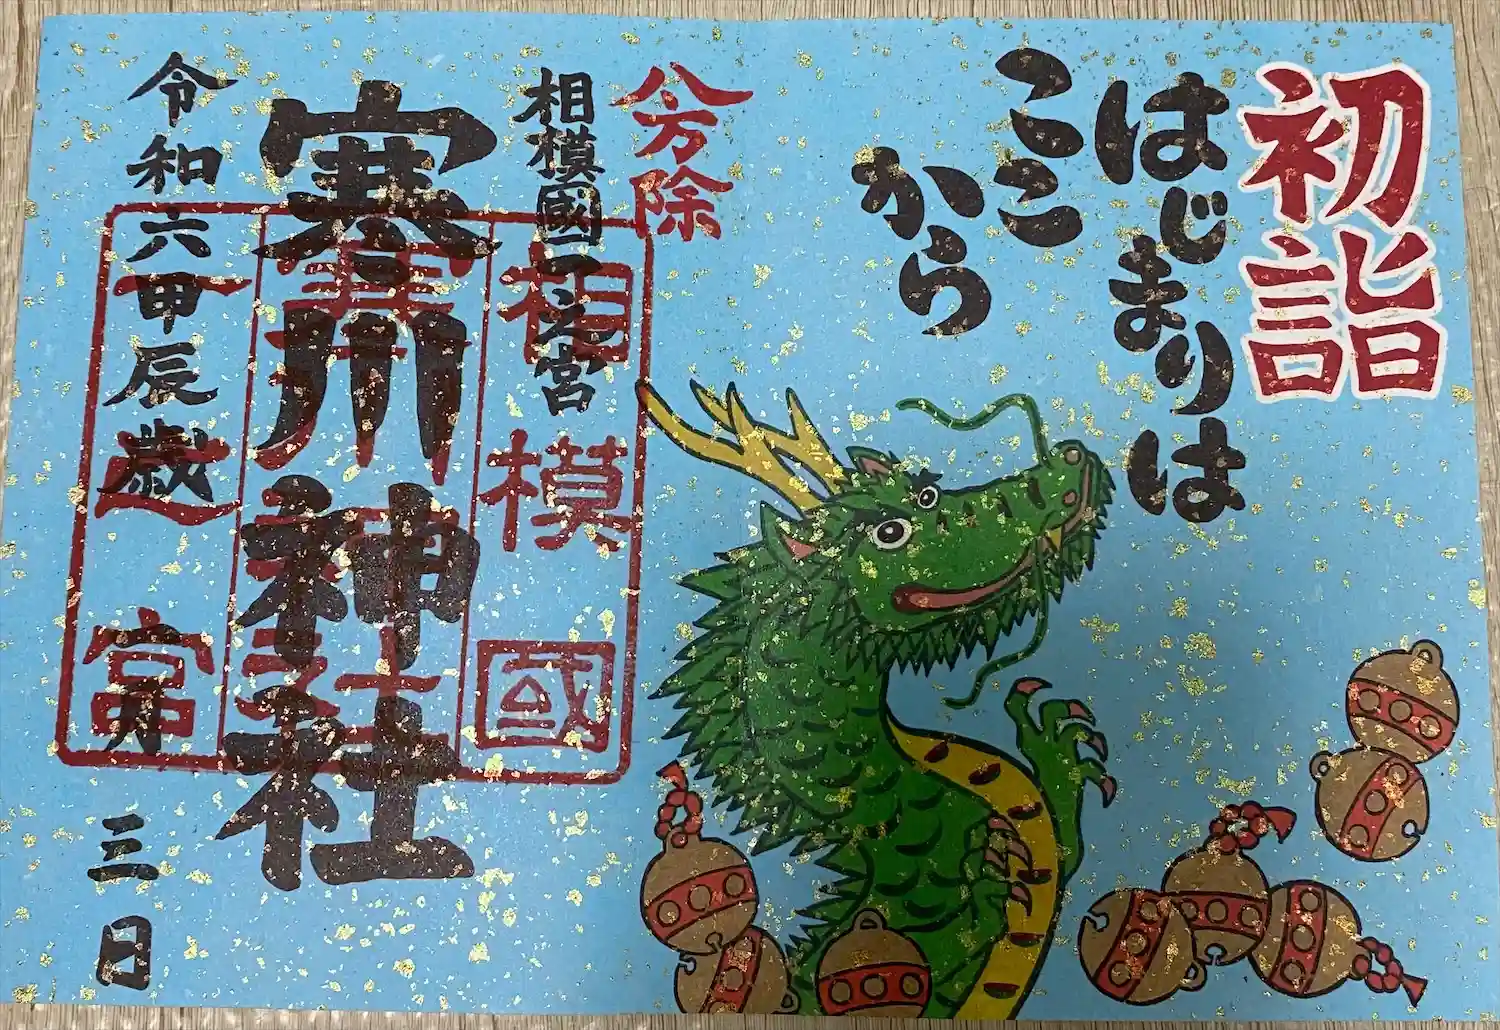 初詣
はじまりは
ここ
から
八方除
相模國一之宮
寒川神社
令和六甲辰歳 月 三日
相模國
寒川神社
一之宮